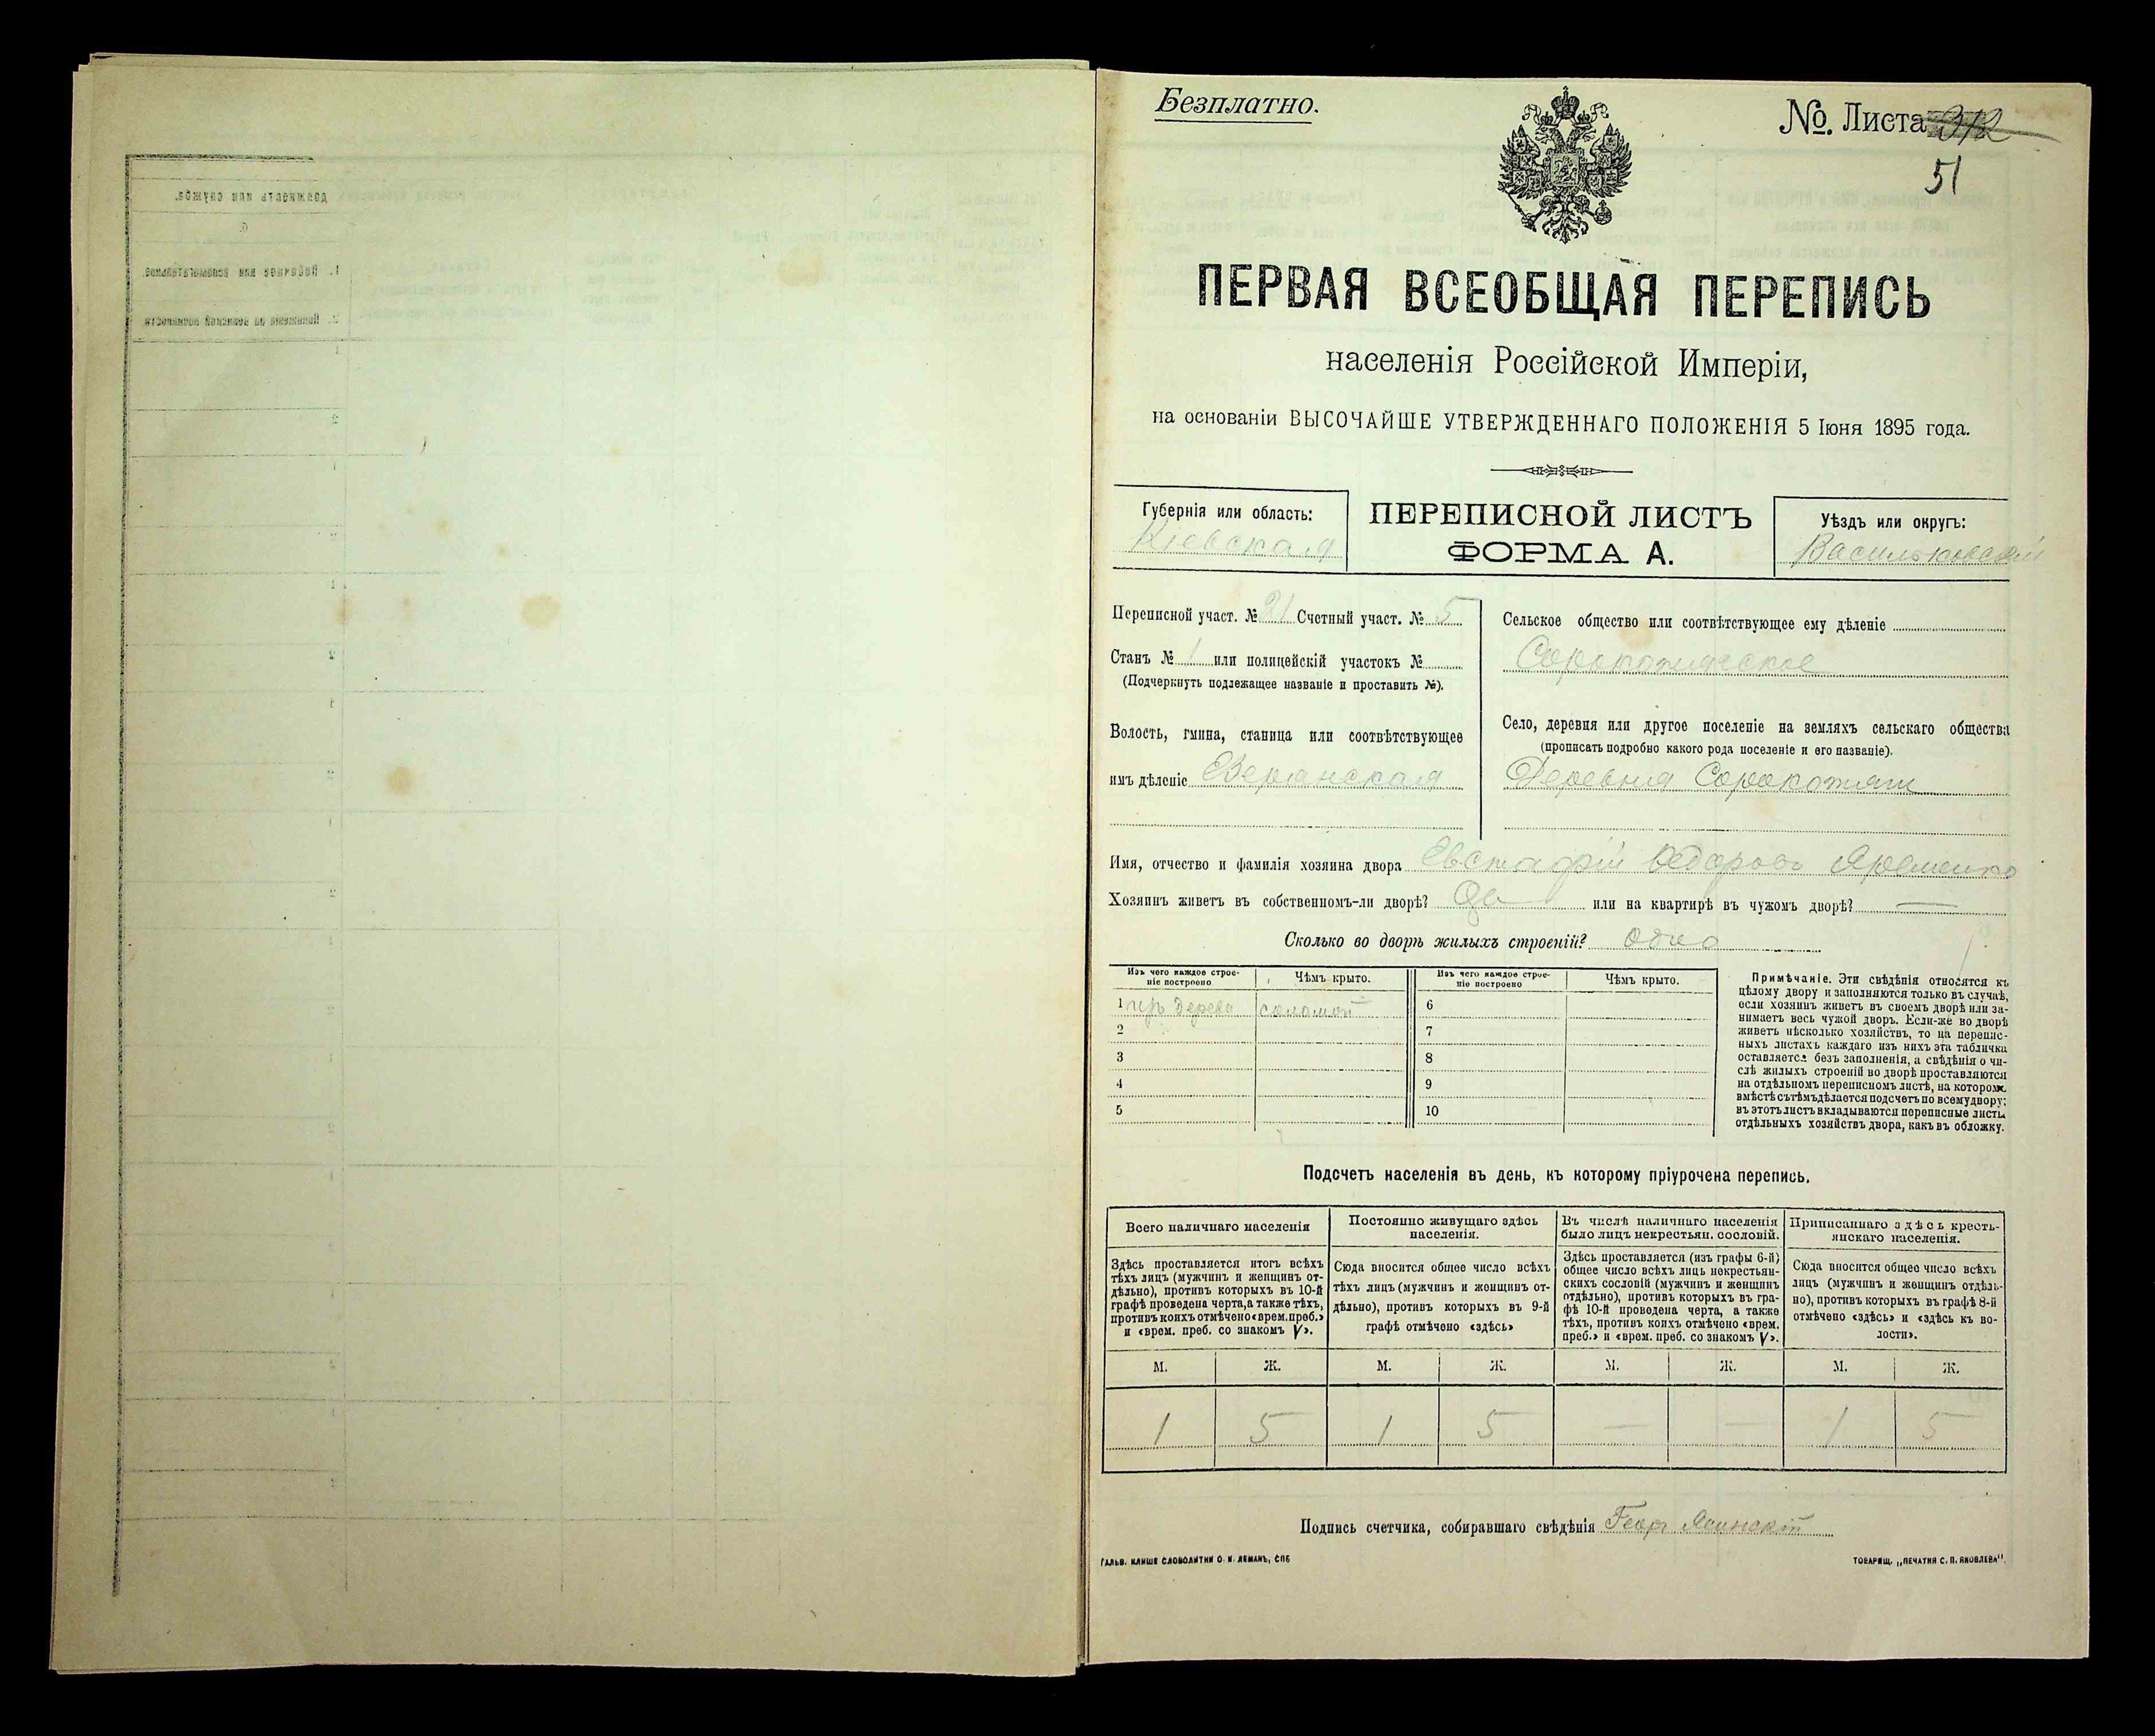 Безплатно.
№. Листа 312
51
ПЕРВАЯ ВСЕОБЩАЯ ПЕРЕПИСЬ
населенія Россійской Имперіи,
на основаніи ВЫСОЧАЙШЕ УТВЕРЖДЕННАГО ПОЛОЖЕНІЯ 5 Іюня 1895 года.
Губернія или область:
Кіевская
ПЕРЕПИСНОЙ ЛИСТЪ
ФОРМА А.
Уѣздъ или округъ:
Васильковскій
Переписной участ. № 21 Счетный участ. № 5
Станъ № 1 или полицейскій участокъ №
(Подчеркнуть подлежащее названіе и проставить №).
Волость, гмина, станица или соотвѣтствующее
имъ дѣленіе
Сельское общество или соотвѣтствующее ему дѣленіе
Сорокотяжское
Село, деревня или другое поселеніе на земляхъ сельскаго общества
(прописать подробно какого рода поселеніе и его названіе).
Деревня Сорокотяги
Имя, отчество и фамилія хозяина двора Евстафій Ѳедоровъ Яременко
Хозяинъ живетъ въ собственномъ-ли дворѣ? Да или на квартирѣ въ чужомъ дворѣ? —
Сколько во дворѣ жилыхъ строеній? одно
Изъ чего каждое строе-
ніе построено
Чѣмъ крыто.
Изъ чего каждое строе-
ніе построено
Чѣмъ крыто.
1 изъ дерева соломой
6
2
7
3
8
4
9
5
10
Примѣчаніе. Эти свѣдѣнія относятся къ
цѣлому двору и заполняются только въ случаѣ,
если хозяинъ живетъ въ своемъ дворѣ или за-
нимаетъ весь чужой дворъ. Если-же во дворѣ
живетъ нѣсколько хозяйствъ, то на перепис-
ныхъ листахъ каждаго изъ нихъ эта табличка
оставляется безъ заполненія, а свѣдѣнія о чи-
слѣ жилыхъ строеній во дворѣ проставляются
на отдѣльномъ переписномъ листѣ, на которомъ
вмѣстѣ съ тѣмъ дѣлается подсчетъ по всему двору;
въ этотъ листъ вкладываются переписные листы
отдѣльныхъ хозяйствъ двора, какъ въ обложку.
Подсчетъ населенія въ день, къ которому пріурочена перепись.
Всего наличнаго населенія
Здѣсь проставляется итогъ всѣхъ
тѣхъ лицъ (мужчинъ и женщинъ от-
дѣльно), противъ которыхъ въ 10-й
графѣ проведена черта, а также тѣхъ,
противъ коихъ отмѣчено «врем. преб.»
и «врем. преб. со знакомъ V».
Постоянно живущаго здѣсь
населенія.
Сюда вносится общее число всѣхъ
тѣхъ лицъ (мужчинъ и женщинъ от-
дѣльно), противъ которыхъ въ 9-й
графѣ отмѣчено «здѣсь»
Въ числѣ наличнаго населенія
было лицъ некрестьян. сословій.
Здѣсь проставляется (изъ графы 6-й)
общее число всѣхъ лицъ некрестьян-
скихъ сословій (мужчинъ и женщинъ
отдѣльно), противъ которыхъ въ гра-
фѣ 10-й проведена черта, а также
тѣхъ, противъ коихъ отмѣчено «врем.
преб.» и «врем. преб. со знакомъ V».
Приписаннаго здѣсь кресть-
янскаго населенія.
Сюда вносится общее число всѣхъ
лицъ (мужчинъ и женщинъ отдѣль-
но), противъ которыхъ въ графѣ 8-й
отмѣчено «здѣсь» и «здѣсь къ во-
лости».
М. Ж. М. Ж. М. Ж. М. Ж.
1 5 1 5 — — 1 5
Подпись счетчика, собиравшаго свѣдѣнія Георг Ясинскій
ГАЛЬВ. КЛИШЕ СЛОВОЛИТНИ О. И. ЛЕМАНЪ, СПБ
ТОВАРИЩ. „ПЕЧАТНЯ С. П. ЯКОВЛЕВА".